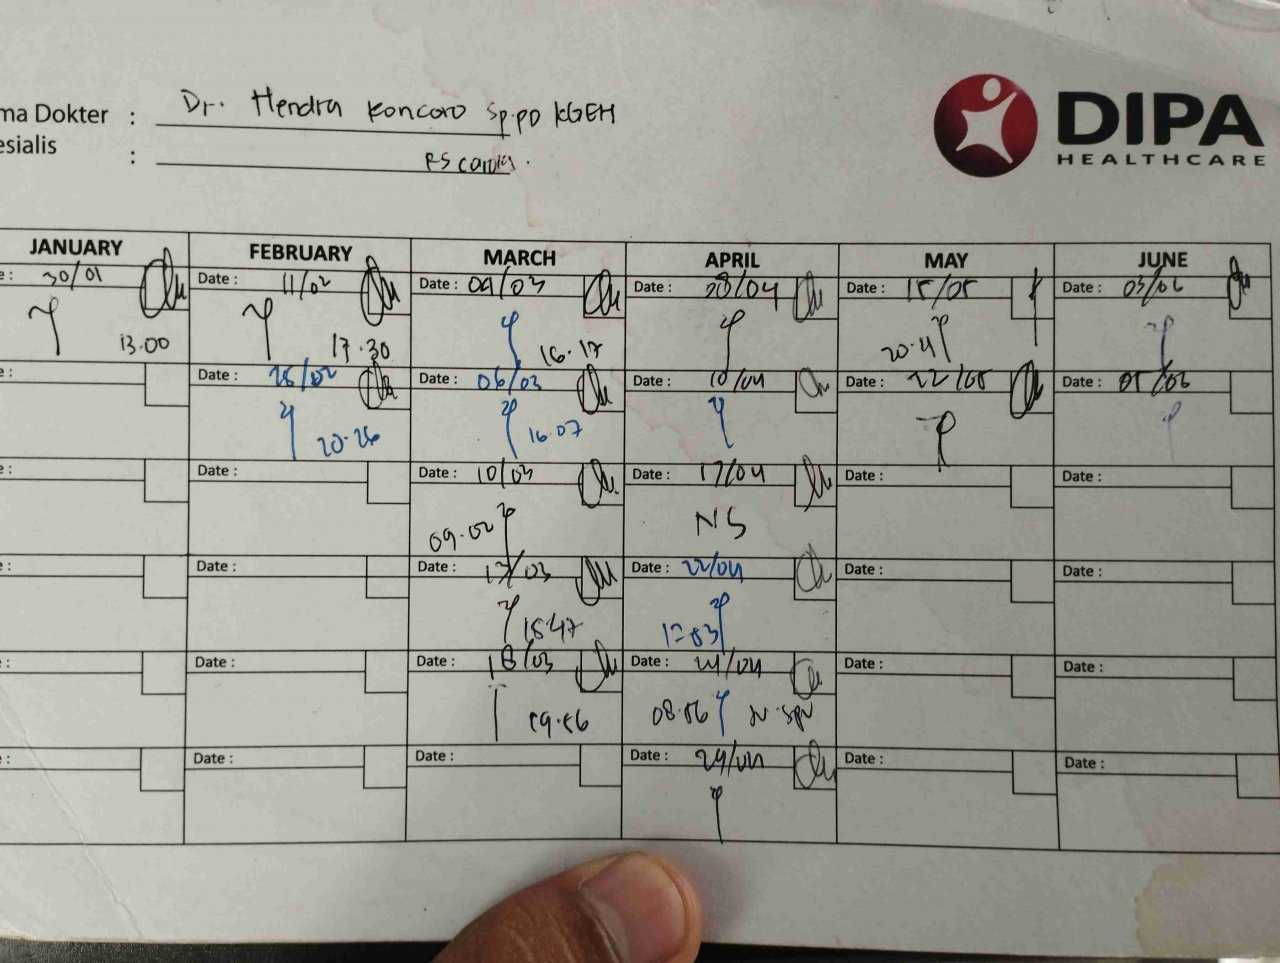 ma Dokter : Dr. Hendra Koncoro Sp.PD KGEH
esialis : RS
DIPA
HEALTHCARE
JANUARY FEBRUARY MARCH APRIL MAY JUNE
e : 30/01 Date : 11/02 Date : 04/03 Date : Date : 15/05 Date : 03/06
13.00 17.30 16.17 20.41
e : Date : 25/02 Date : 06/03 Date : 10/04 Date : 22/05 Date : 05/06
20.26 16.07
e : Date : Date : 10/03 Date : 17/04 Date : Date :
09.02 NS
e : Date : Date : 13/03 Date : 22/04 Date : Date :
15.47
e : Date : Date : 18/03 Date : 24/04 Date : Date :
08.56
e : Date : Date : Date : 29/04 Date : Date :